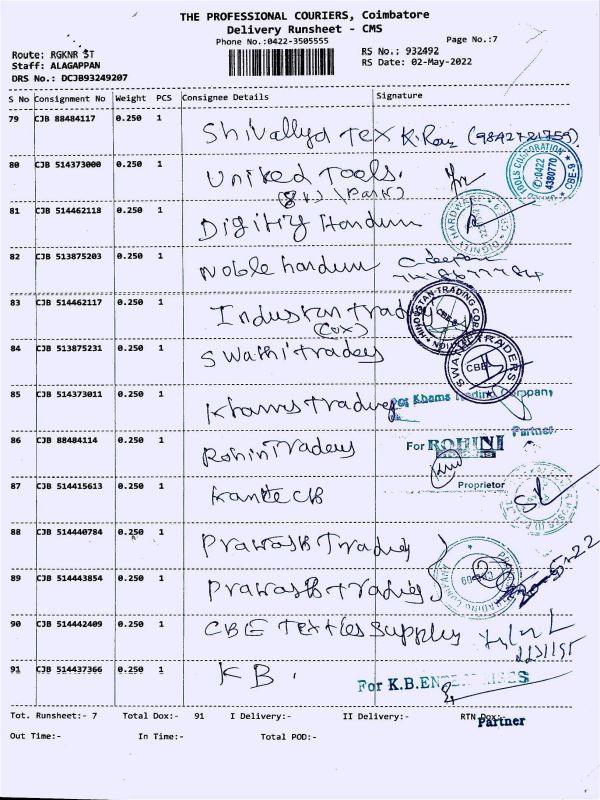 THE PROFESSIONAL COURIERS, Coimbatore
Delivery Runsheet - CMS
Phone No.:0422-3505555
Page No.:7
Route: RGKNR ST
Staff: ALAGAPPAN
DRS No.: DCJB93249207
RS No.: 932492
RS Date: 02-May-2022
S No Consignment No Weight PCS Consignee Details Signature
79 CJB 88484117 0.250 1 Shivallya Tex K. (9842721759)
80 CJB 514373000 0.250 1 United Tools.
TOOLS CORPORATION 0422 4380770 CBE-9
81 CJB 514462118 0.250 1 Digitiy Hardum
DIGNITY HARDWARE
82 CJB 513875203 0.250 1 Noble hardum C. deepan
83 CJB 514462117 0.250 1 Industan Tradey
(Cox)
HINDUSTAN TRADING CORP CBE-9
84 CJB 513875231 0.250 1 Swathi tradeys
SWATHI TRADERS CBE
85 CJB 514373011 0.250 1 Khams Trading
For Khams Trading Company
Partner
86 CJB 88484114 0.250 1 Rohini Tradeys
For ROHINI
Proprietor
87 CJB 514415613 0.250 1
88 CJB 514440784 0.250 1 Prawash Tradies
89 CJB 514443854 0.250 1 Prawash tradies
TRADING COMPANY
90 CJB 514442409 0.250 1 CBE Textles Supplys
91 CJB 514437366 0.250 1 K B .
For K.B.ENTERPRISES
Partner
Tot. Runsheet:- 7 Total Dox:- 91 I Delivery:- II Delivery:- RTN Dox:-
Out Time:- In Time:- Total POD:-